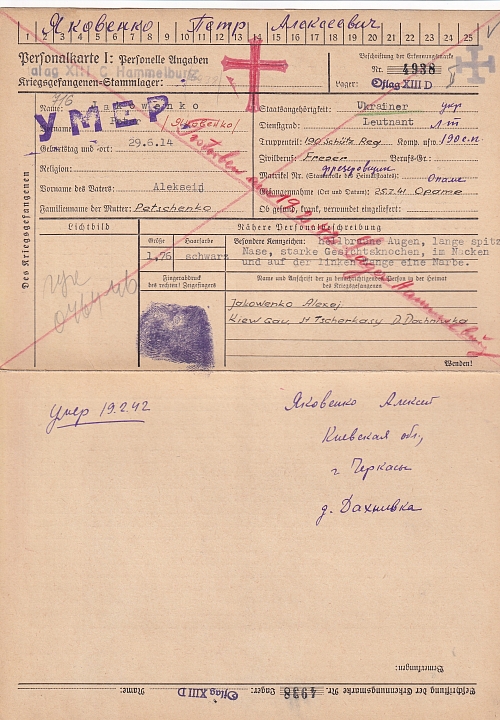 Яковенко Петр Алексеевич
1 2 3 4 5 6 7 8 9 10 11 12 13 14 15 16 17 18 19 20 21 22 23 24 25
Personalkarte I: Personelle Angaben
Beschriftung der Erkennungsmarke
Nr. 4938
Kriegsgefangenen-Stammlager:
Lager: Oflag XIII D
Name:
УМЕР
/Яковенко/
Staatsangehörigkeit: Ukrainer укр
Dienstgrad: Leutnant Л-т
Truppenteil: 190 Schütz Reg. Komp. usw. 190 с.п.
Geburtstag und -ort: 29.6.14
Zivilberuf: Freser Berufs-Gr.
Religion:
Matrikel Nr.
Vorname des Vaters: Alekseij
Gefangennahme (Ort und Datum): 25.7.41 Opame
Familienname der Mutter: Potschenko
Ob gesund, krank, verwundet eingeliefert:
Gestorben am 19.2.42 Lager Hammelburg
Des Kriegsgefangenen
Lichtbild
Nähere Personalbeschreibung
Größe
Haarfarbe
1,76
schwarz
Besondere Kennzeichen: hellbraune Augen, lange spitz
Nase, starke Gesichtsknochen, im Nacken
und auf der linken Wange eine Narbe.
Fingerabdruck
des rechten! Zeigefingers
Name und Anschrift der zu benachrichtigenden Person in der Heimat
des Kriegsgefangenen
Jakowenko Alexej
Kiew Gau, St Tscherkasy D. Dachniwka
Wenden!
умер 19.2.42
Яковенко Алексей
Киевская обл,
г Черкасы
д. Дахнивка
Bemerkungen:
Beschriftung der Erkennungsmarke Nr. 4938 Lager: Oflag XIII D Name: